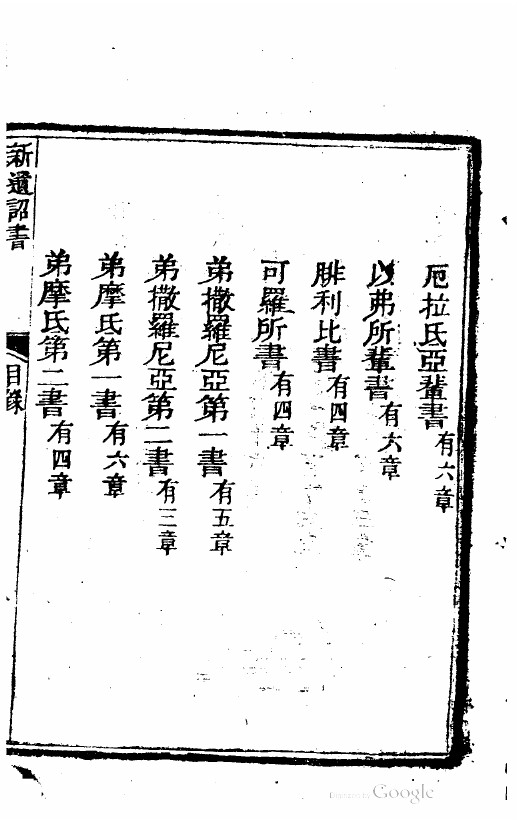 厄拉氏亞輩書有六章
以弗所輩書有六章
腓利比書有四章
可羅所書有四章
弟撒羅尼亞第一書有五章
弟撒羅尼亞第二書有三章
弟摩氏第一書有六章
弟摩氏第二書有四章
新遺詔書
目錄
Digitized by Google